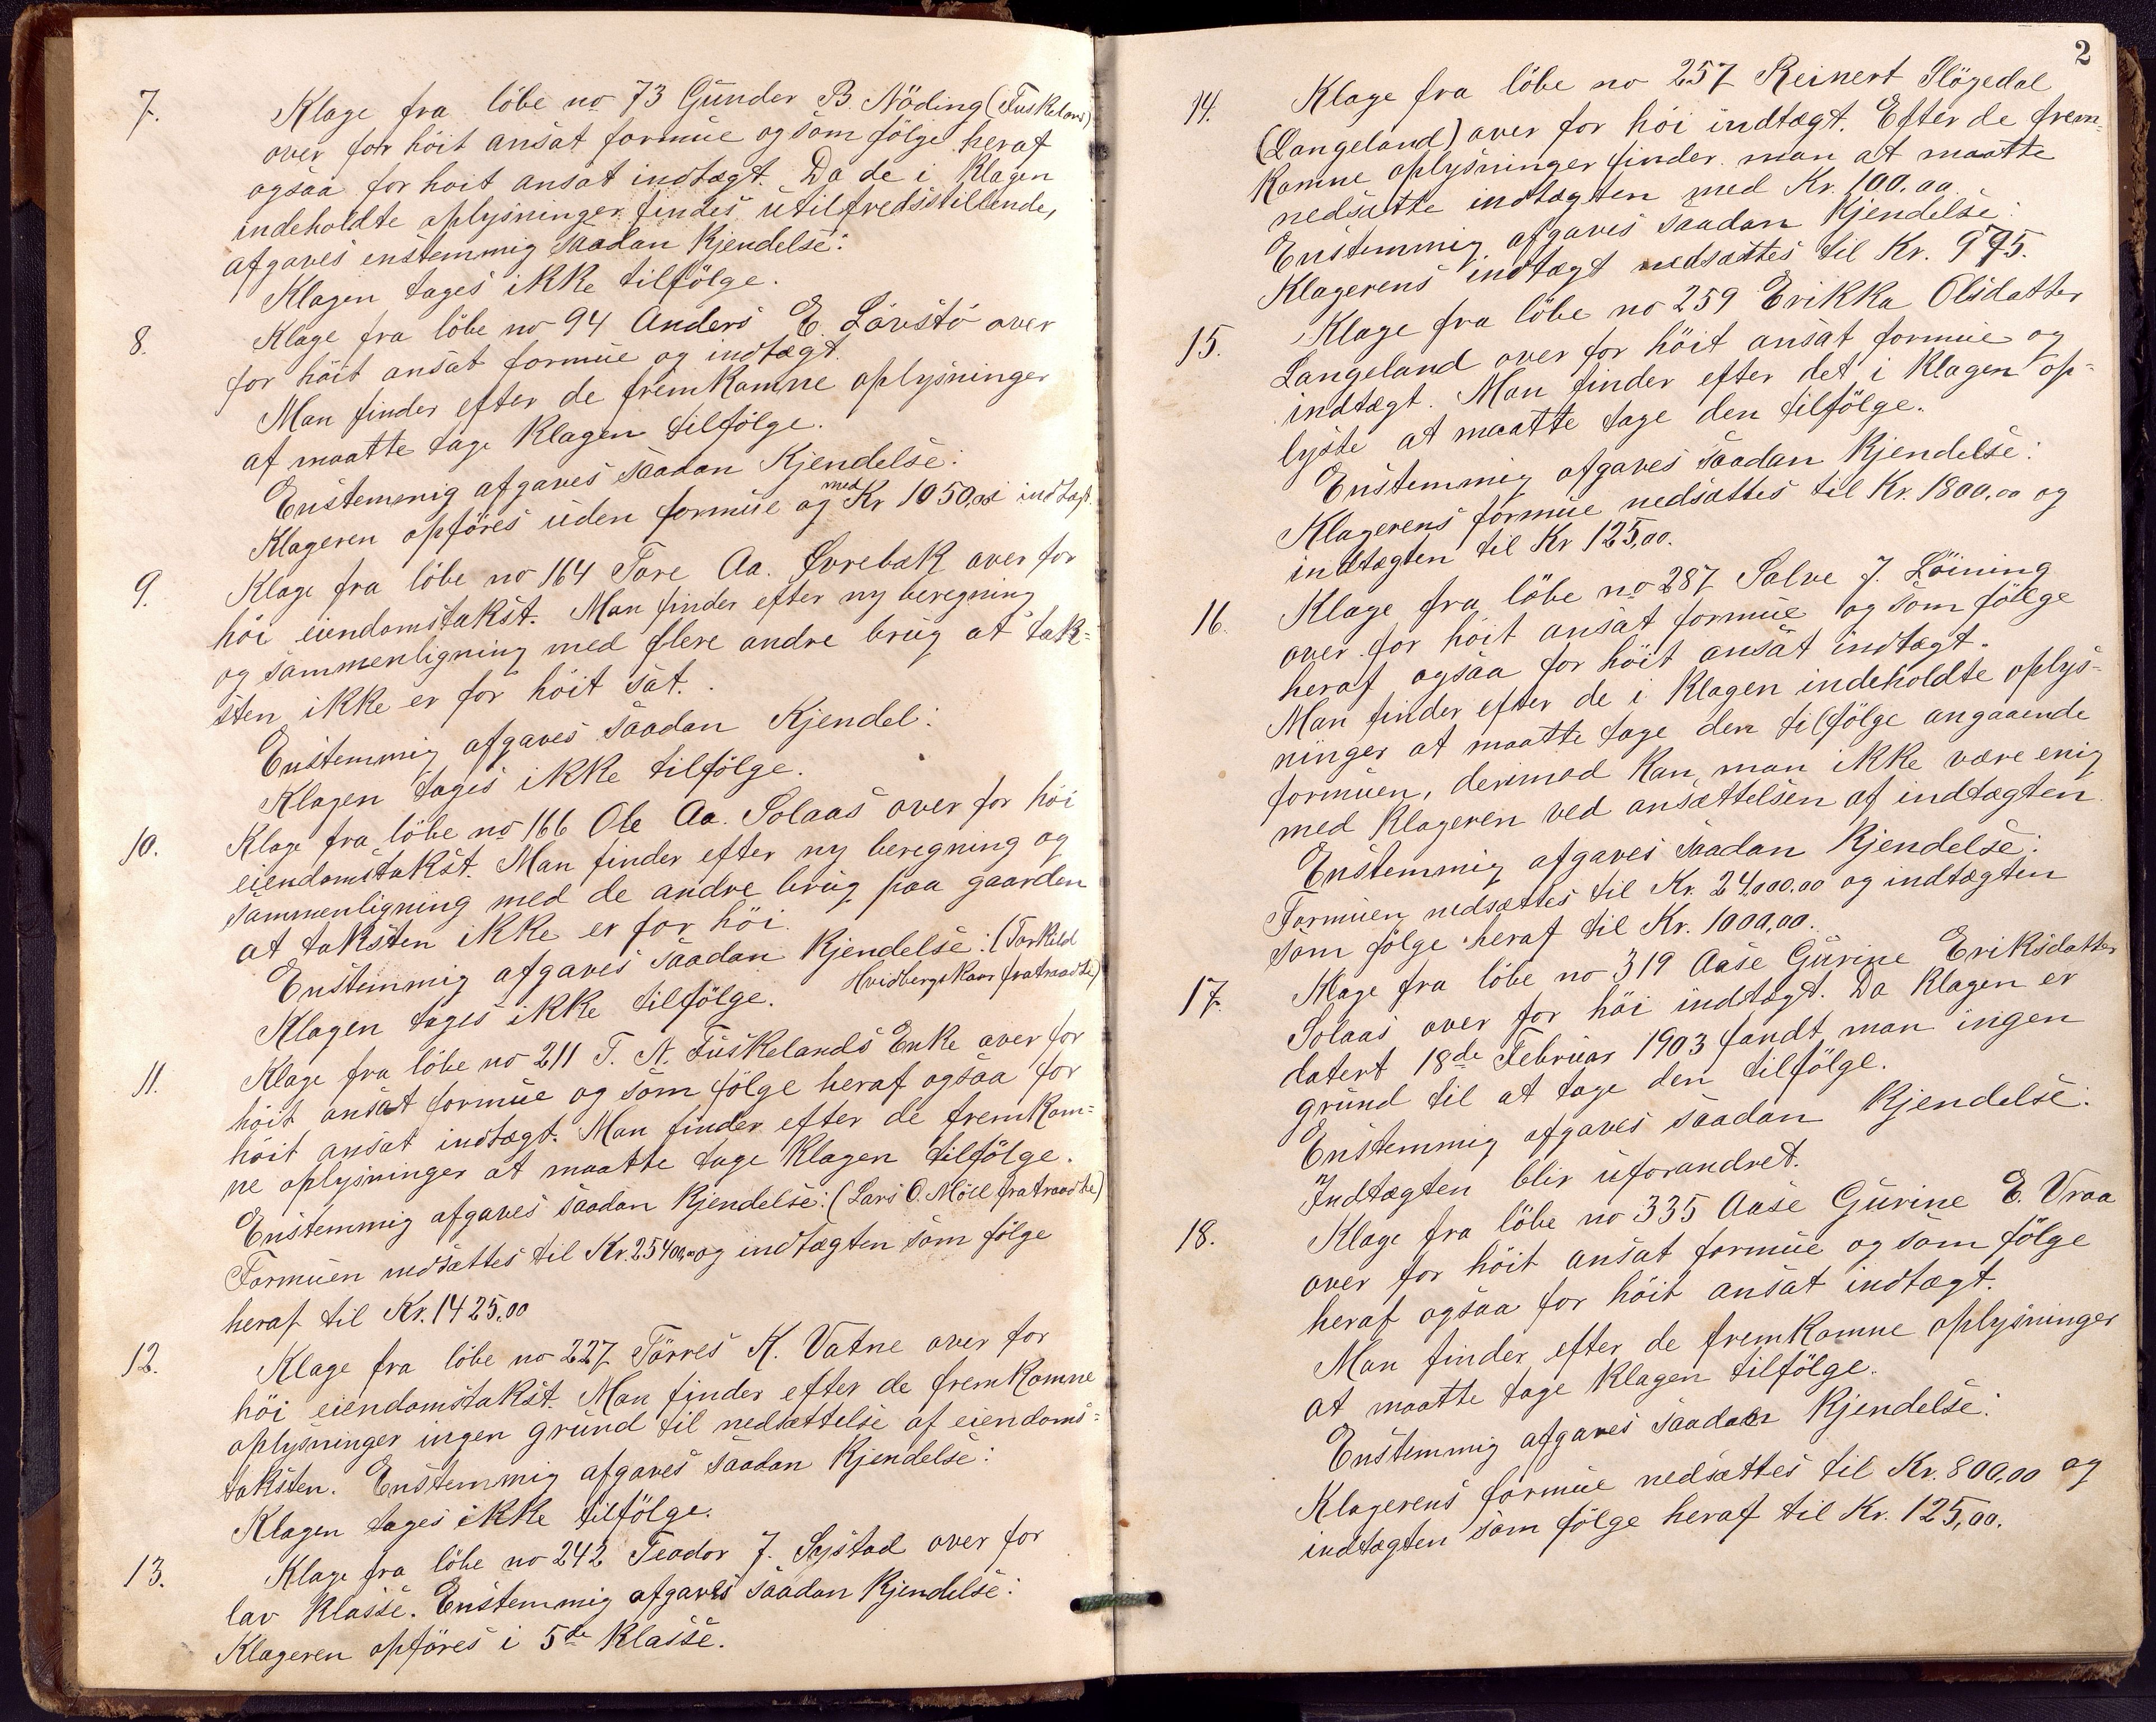 7. Klage fra löbe no 73 Gunder B. Nöding (Tuskeland)
over for höit ansat formue og som fölge heraf
ogsaa for hoit ansat indtægt. Da de i Klagen
indeholdte oplysninger findes utilfredsstillende,
afgaves enstemmig saadan Kjendelse:
Klagen tages ikke tilfölge.
8. Klage fra löbe no 94 Anders E. Lövstö over
for höit ansat formue og indtægt.
Man finder efter de fremkomne oplysninger
at maatte tage Klagen tilfölge.
Enstemmig afgaves saadan Kjendelse:
Klageren opföres uden formue og med Kr 1050,00 i indtægt.
9. Klage fra löbe no 164 Tore Aa. Øvrebøk over for
höi eiendomstakst. Man finder efter ny beregning
og sammenligning med flere andre brug at tak=
sten ikke er for höit sat.
Enstemmig afgaves saadan Kjendel:
Klagen tages ikke tilfölge.
10. Klage fra löbe no 166 Ole Aa. Solaas over for höi
eiendomstakst. Man finder efter ny beregning og
sammenligning med de andre brug paa gaarden
at taksten ikke er for höi.
Enstemmig afgaves saadan Kjendelse: (Torkild
Hvidbergskaar fratraadte)
Klagen tages ikke tilfölge.
11. Klage fra löbe no 211 T. N. Tuskelands Enke over for
höit ansat formue og som fölge heraf ogsaa for
höit ansat indtægt. Man finder efter de fremkom=
ne oplysninger at maatte tage Klagen tilfölge.
Enstemmig afgaves saadan Kjendelse: (Lars O. Möll fratraadte)
Formuen nedsættes til Kr. 25400,00 og indtægten som fölge
heraf til Kr. 1425,00
12. Klage fra löbe no 227 Törres K. Vatne over for
höi eiendomstakst. Man finder efter de fremkomne
oplysninger ingen grund til nedsættelse af eiendoms=
taksten. Enstemmig afgaves saadan Kjendelse:
Klagen tages ikke tilfölge.
13. Klage fra löbe no 242 Teodor J. Systad over for
lav Klasse. Enstemmig afgaves saadan Kjendelse:
Klageren opföres i 5de Klasse.
2
14. Klage fra löbe no 257 Reinert Slögedal
(Langeland) over for höi indtægt. Efter de frem=
komne oplysninger finder man at maatte
nedsætte indtægten med Kr. 100,00
Enstemmig afgaves saadan Kjendelse:
Klagerens indtægt nedsættes til Kr. 975.
15. Klage fra löbe no 259 Erikka Olsdatter
Langeland over for höit ansat formue og
indtægt. Man finder efter det i Klagen op=
lyste at maatte tage den tilfölge.
Enstemmig afgaves saadan Kjendelse:
Klagerens formue nedsættes til Kr. 1800,00 og
indtægten til Kr 125,00.
16. Klage fra löbe no 287 Salve J. Löining
over for höit ansat formue og som fölge
heraf ogsaa for höit ansat indtægt.
Man finder efter de i Klagen indeholdte oplys=
ninger at maatte tage den tilfölge angaaende
formuen, derimod kan man ikke være enig
med Klageren ved ansættelsen af indtægten
Enstemmig afgaves saadan Kjendelse:
Formuen nedsættes til Kr. 24,000,00 og indtægten
som fölge heraf til Kr. 1000,00.
17. Klage fra löbe no 319 Aase Gurine Eriksdatter
Solaas over for höi indtægt. Da Klagen er
datert 18de Februar 1903 fandt man ingen
grund til at tage den tilfölge.
Enstemmig afgaves saadan Kjendelse:
Indtægten blir uforandret.
18. Klage fra löbe no 335 Aase Gurine E. Vraa
over for höit ansat formue og som fölge
heraf ogsaa for höit ansat indtægt.
Man finder efter de fremkomne oplysninger
at maatte tage Klagen tilfölge.
Enstemmig afgaves saadan Kjendelse:
Klagerens formue nedsættes til Kr. 800,00 og
indtægten som fölge heraf til Kr. 125,00.